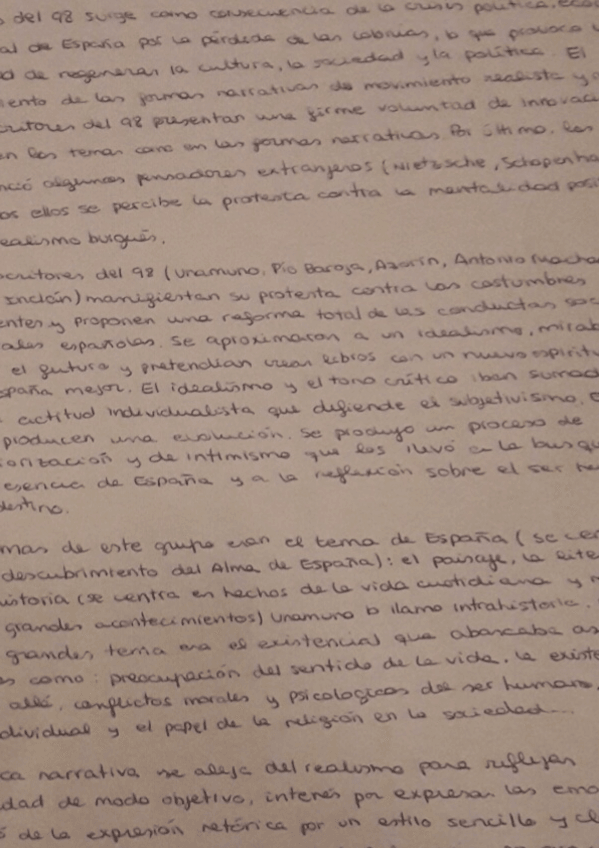 del 98 surge como consecuencia de la crisis política,
de España por la pérdida de las colonias, lo que provocó
de regenerar la cultura, la sociedad y la política. El
de las formas narrativas de movimiento realista y
del 98 presentan una firme voluntad de innovac
en los temas como en las formas narrativas. Por último, los
algunos pensadores extranjeros (Nietzsche, Schopenha
ellos se percibe la protesta contra la mentalidad posi
realismo burgués.
critores del 98 (Unamuno, Pío Baroja, Azorín, Antonio Macha
Inclán) manifiestan su protesta contra las costumbres
entes y proponen una reforma total de las conductas soc
ales españolas. Se aproximaron a un idealismo, mirab
el futuro y pretendían crear libros con un nuevo espíritu
spaña mejor. El idealismo y el tono crítico iban sumad
actitud individualista que defiende el subjetivismo,
producen una evolución. Se produjo un proceso de
iorización y de intimismo que los llevó a la busqu
esencia de España y a la reflexión sobre el ser hu
destino.
mas de este grupo eran el tema de España (se cen
descubrimiento del Alma de España): el paisaje, la lite
historia (se centra en hechos de la vida cuotidiana y
grandes acontecimientos) Unamuno lo llamo intrahistoria.
grandes, tema era el existencial que abarcaba as
como: preocupación del sentido de la vida, la existe
allá, conflictos morales y psicologicos del ser humano,
dividual y el papel de la religión en la sociedad...
ca narrativa se aleja del realismo para reflejar
dad de modo objetivo, interés por expresar las emo
de la expresión retórica por un estilo sencillo y cl